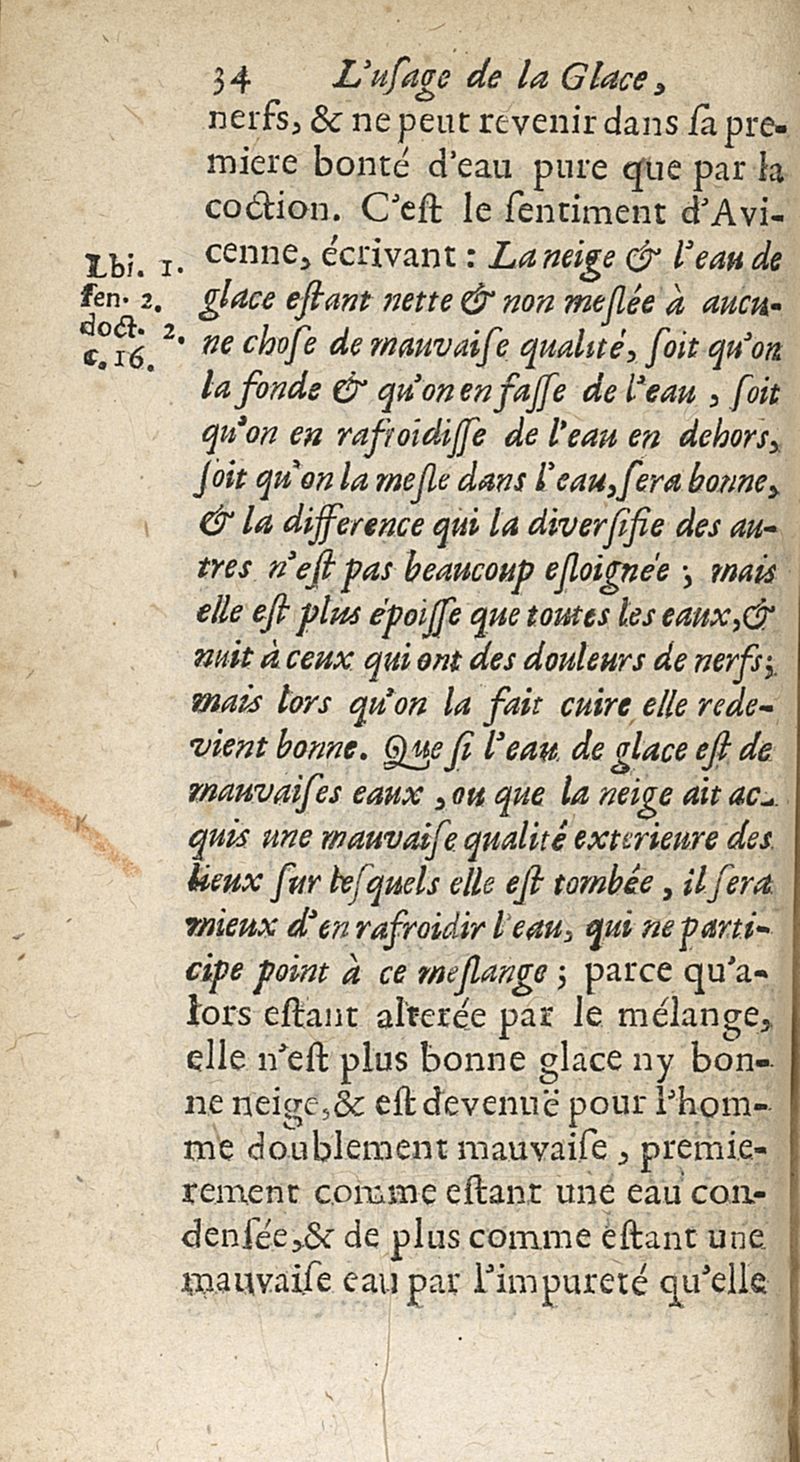 34 L'uſage de la Glace,
nerfs, & ne peut revenir dans ſa pre-
miere bonté d'eau pure que par la
coction. C'eſt le ſentiment d'Avi-
cenne, écrivant : La neige & l'eau de
glace eſtant nette & non meſlée à aucu-
ne choſe de mauvaiſe qualité, ſoit qu'on
la fonde & qu'on en faſſe de l'eau , ſoit
qu'on en rafroidiſſe de l'eau en dehors,
ſoit qu'on la meſle dans l'eau, ſera bonne,
& la difference qui la diverſifie des au-
tres n'eſt pas beaucoup eſloignée ; mais
elle eſt plus époiſſe que toutes les eaux, &
nuit à ceux qui ont des douleurs de nerfs;
mais lors qu'on la fait cuire elle rede-
vient bonne. Que ſi l'eau de glace eſt de
mauvaiſes eaux , ou que la neige ait ac-
quis une mauvaiſe qualité exterieure des
lieux ſur leſquels elle eſt tombée , il ſera
mieux d'en rafroidir l'eau, qui ne parti-
cipe point à ce meſlange ; parce qu'a-
lors eſtant alterée par le mélange,
elle n'eſt plus bonne glace ny bon-
ne neige, & eſt devenuë pour l'hom-
me doublement mauvaiſe , premie-
rement comme eſtant une eau con-
denſée, & de plus comme eſtant une
mauvaiſe eau par l'impureté qu'elle
Lbi. 1.
fen. 2.
doct. 2.
c. 16.